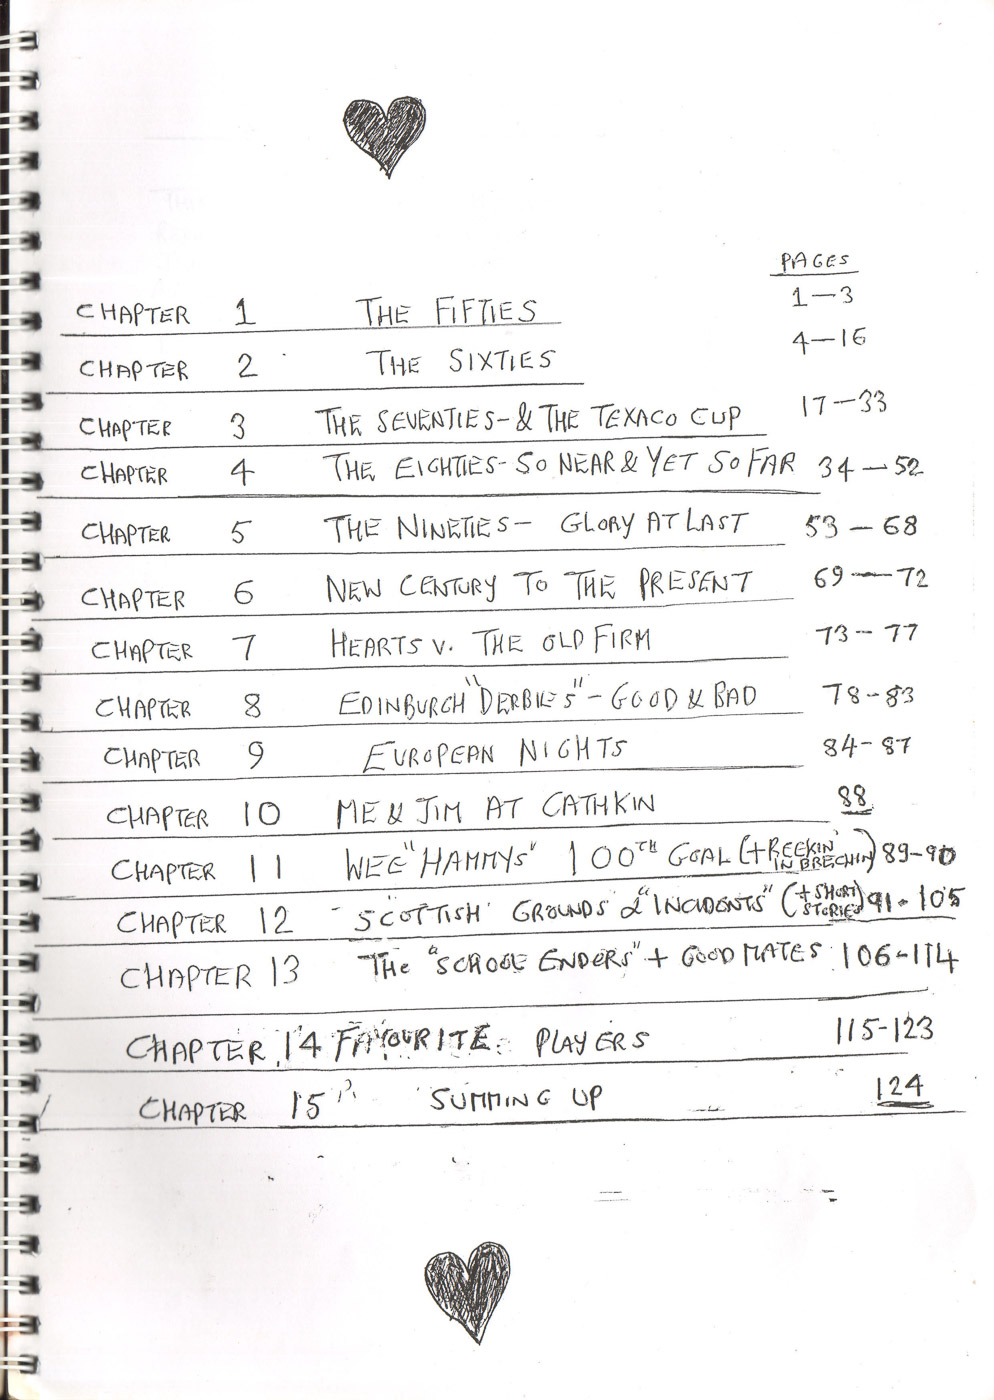 PAGES
CHAPTER 1 THE FIFTIES 1-3
CHAPTER 2 THE SIXTIES 4-16
CHAPTER 3 THE SEVENTIES-& THE TEXACO CUP 17-33
CHAPTER 4 THE EIGHTIES-SO NEAR & YET SO FAR 34-52
CHAPTER 5 THE NINETIES- GLORY AT LAST 53-68
CHAPTER 6 NEW CENTURY TO THE PRESENT 69-72
CHAPTER 7 HEARTS V. THE OLD FIRM 73-77
CHAPTER 8 EDINBURGH "DERBIES"-GOOD & BAD 78-83
CHAPTER 9 EUROPEAN NIGHTS 84-87
CHAPTER 10 ME & JIM AT CATHKIN 88
CHAPTER 11 WEE "HAMMYS" 100TH GOAL (+REEKIN' IN BRECHIN) 89-90
CHAPTER 12 - SCOTTISH GROUNDS & "INCIDENTS" (+ SHORT STORIES) 91-105
CHAPTER 13 THE "SCHOOL ENDERS" + GOOD MATES 106-114
CHAPTER 14 FAVOURITE PLAYERS 115-123
CHAPTER 15 SUMMING UP 124